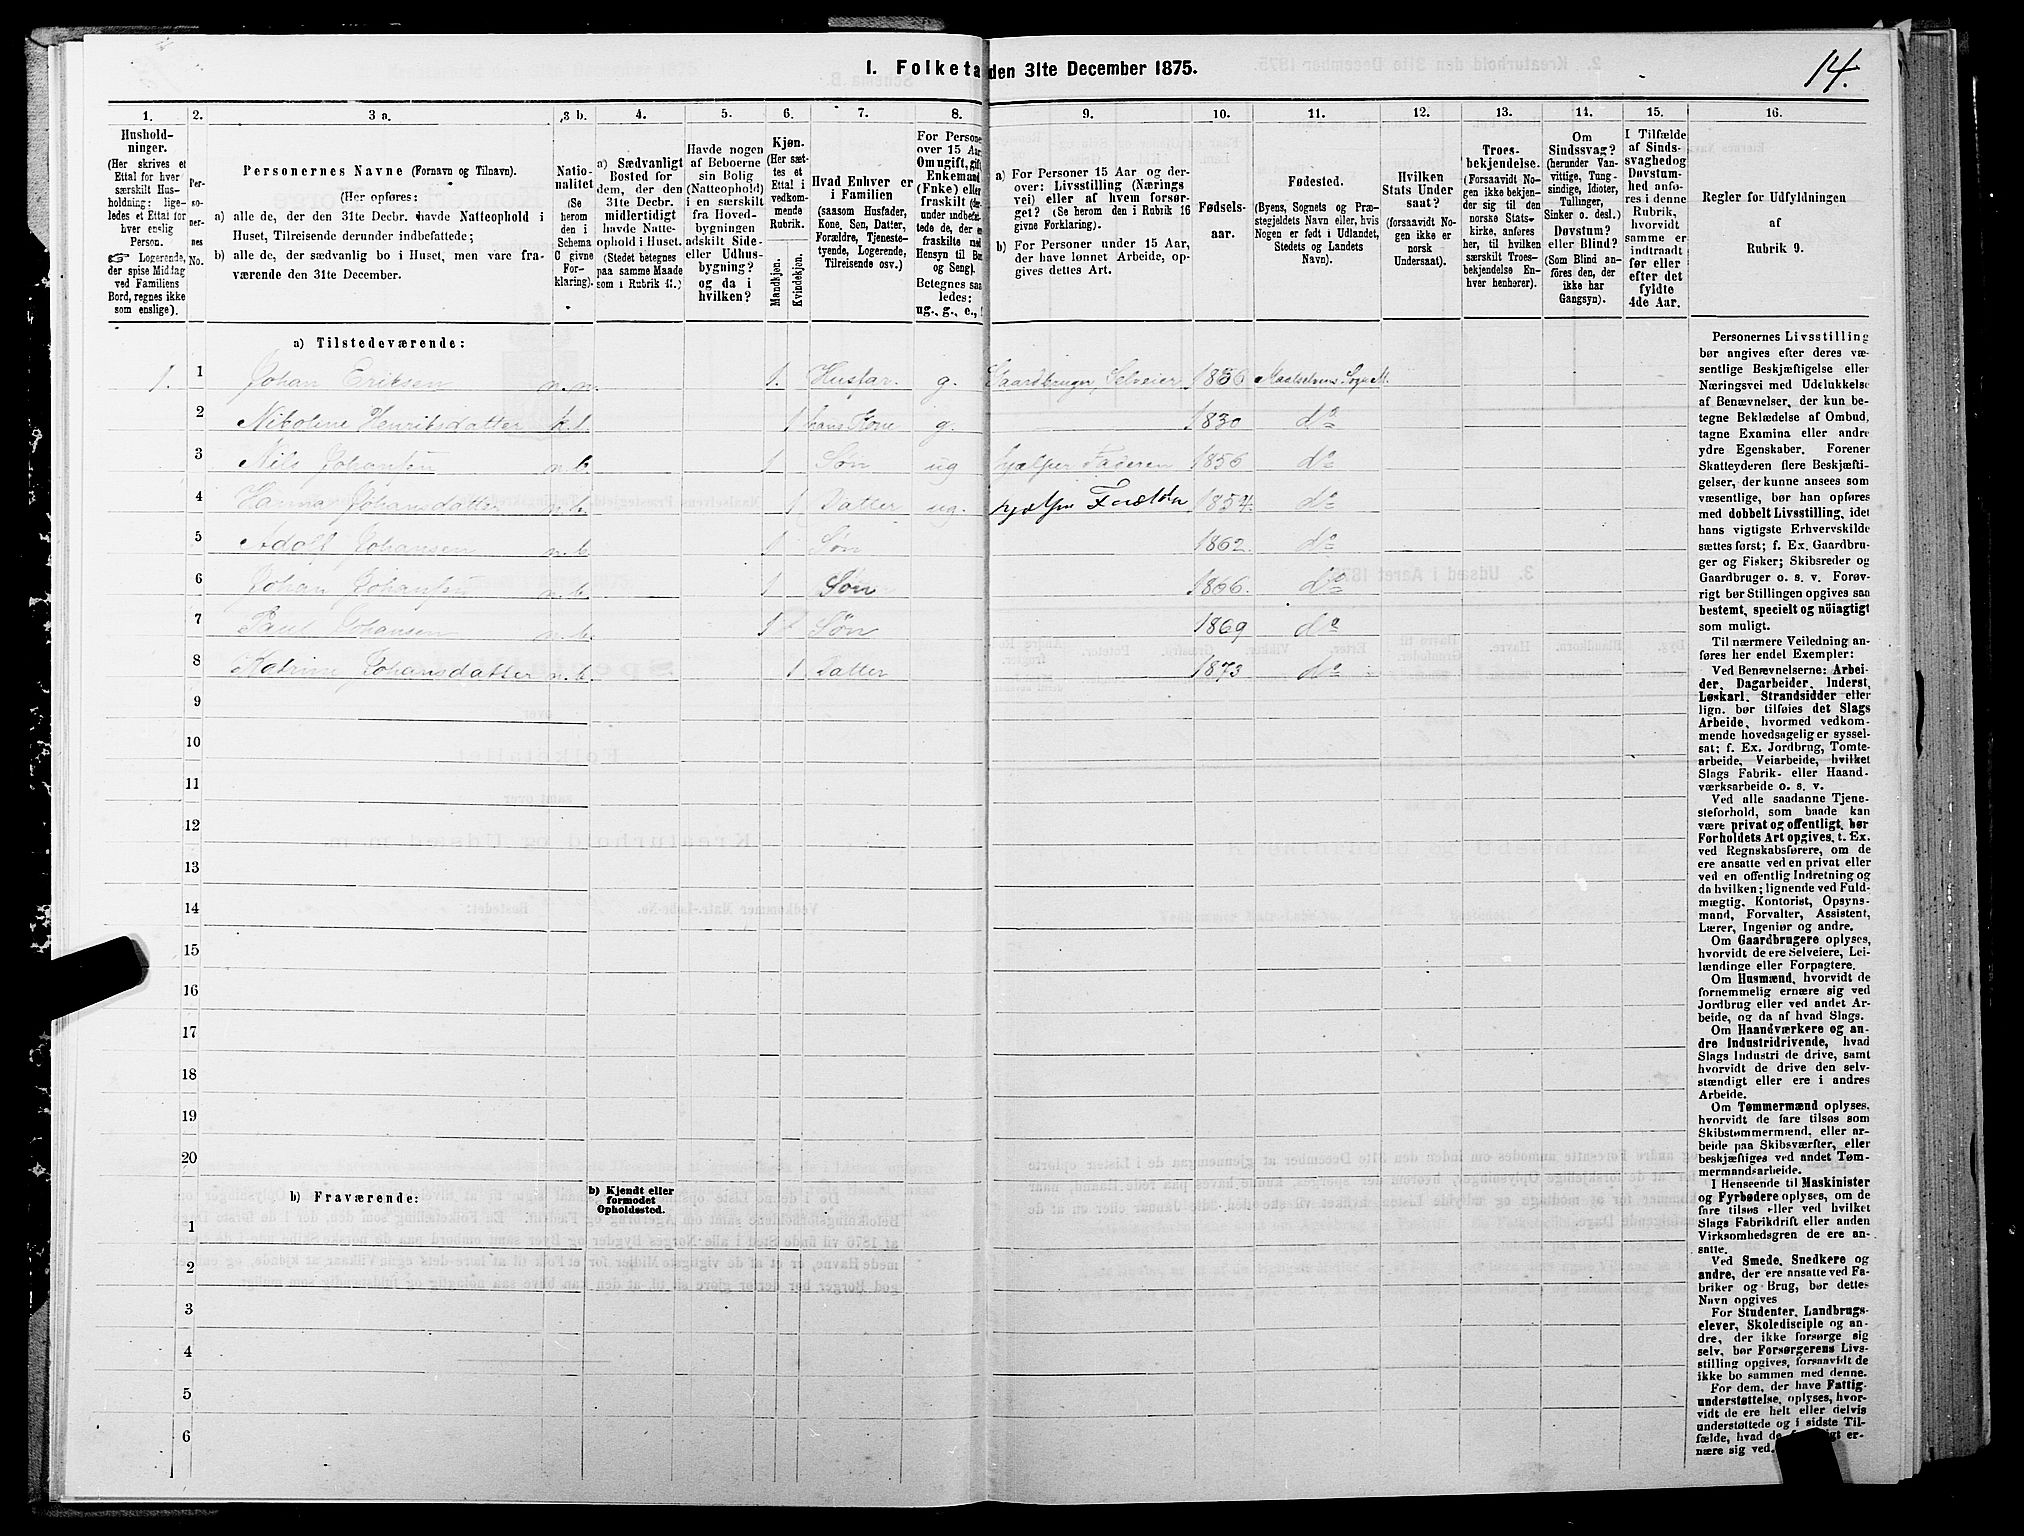 I. Folketa den 31te December 1875.
14.
1.
Hushold-
ninger.
(Her skrives et
Ettal for hver
særskilt Hus-
holdning; lige-
ledes et Ettal for
hver enslig
Person.
☞ Logerende,
der spise Middag
ved Familiens
Bord, regnes ikke
som enslige).
2.
Per-
so-
ner-
nes
No.
3 a.
Personernes Navne (Fornavn og Tilnavn).
(Her opføres:
a) alle de, der den 31te Decbr. havde Natteophold i
Huset, Tilreisende derunder indbefattede;
b) alle de, der sædvanlig bo i Huset, men vare fra-
værende den 31te December.
3 b.
Natio-
nalitet
(Se
herom
den i
Schema
C givne
For-
klaring).
4.
a) Sædvanligt
Bosted for
dem, der den
31te Decbr.
midlertidigt
havde Natte-
ophold i Huset.
(Stedet betegnes
paa samme Maade
som i Rubrik 11.)
5.
Havde nogen
af Beboerne
sin Bolig
(Natteophold)
i en særskilt
fra Hoved-
bygningen
adskilt Side-
eller Udhus-
bygning?
og da i
hvilken?
6.
Kjøn.
(Her sæt-
tes et
Ettal i
vedkom-
mende
Rubrik.
Mandkjøn.
Kvindekjøn.
7.
Hvad Enhver er
i Familien
(saasom Husfader,
Kone, Søn, Datter,
Forældre, Tjeneste-
tyende, Logerende,
Tilreisende osv.)
8.
For Persone
over 15 Aar
Om ugift, gift
Enkemand
(Enke) eller
fraskilt
Betegnes saa
ledes:
ug., g., e.,
9.
a) For Personer 15 Aar og der-
over: Livsstilling (Nærings
vei) eller af hvem forsør-
get? (Se herom den i Rubrik 16
givne Forklaring).
b) For Personer under 15 Aar,
der have lønnet Arbeide, op-
gives dettes Art.
10.
Fødsels-
aar.
11.
Fødested.
(Byens, Sognets og Præ-
stegjeldets Navn eller, hvis
Nogen er født i Udlandet,
Stedets og Landets
Navn).
12.
Hvilken
Stats Under
saat?
(forsaavidt No-
gen ikke er
norsk
Undersaat).
13.
Troes-
bekjendelse.
(Forsaavidt No-
gen ikke bekjen-
der sig til den
norske Stats-
kirke, anføres
her, til hvilken
særskilt Troes-
bekjendelse En-
hver henhører).
14.
Om
Sindssvag?
(herunder Van-
vittige, Tung-
sindige, Idioter,
Tullinger,
Sinker o. desl.)
Døvstum?
eller Blind?
(Som Blind an-
føres den, der
ikke har
Gangsyn).
15.
I Tilfælde
af Sinds-
svaghed og
Døvstum-
hed anfø-
res i denne
Rubrik,
hvorvidt
samme er
indtraadt
før eller
efter det
fyldte
4de Aar.
16.
Regler for Udfyldningen
af
Rubrik 9.
a) Tilstedeværende:
1. 1 Johan Eriksen n.n. 1. Husfar. g. Gaardbruger, Selveier 1836 Maalselvens Sogn M.
2 Nikoline Henriksdatter k.b. 1 hans Kone g. 1830 do
3 Nils Johansen n.b. 1 Søn ug hjælper Faderen 1856 do
4 Hanna Johansdatter n.b. 1 Datter ug. hjelper Foreldre 1854. do
5 Adolf Johansen n.b. 1 Søn 1862. do
6 Johan Johansen n.b. 1 Søn 1866. do
7 Paul Johansen n.b. 1 Søn 1869 do
8 Katrine Johansdatter n.b. 1 Datter 1873 do
9
10
11
12
13
14
15
16
17
18
19
20
b) Fraværende:
b) Kjendt eller
formodet
Opholdssted.
1
2
3
4
5
6
Personernes Livsstilling
bør angives efter deres væ-
sentlige Beskjæftigelse eller
Næringsvei med Udelukkelse
af Benævnelser, der kun be-
tegne Beklædelse af Ombud,
tagne Examina eller andre
ydre Egenskaber. Forener
Skatteyderen flere Beskjæfti-
gelser, der kunne ansees som
væsentlige, bør han opføres
med dobbelt Livsstilling, idet
hans vigtigste Erhvervskilde
sættes først; f. Ex. Gaardbru-
ger og Fisker; Skibsreder og
Gaardbruger o. s. v. Forøv-
rigt bør Stillingen opgives saa
bestemt, specielt og nöiagtigt
som muligt.
Til nærmere Veiledning an-
føres her endel Exempler:
Ved Benævnelserne: Arbei-
der, Dagarbeider, Inderst,
Løskarl, Strandsidder eller
lign. bør tilføies det Slags
Arbeide, hvormed vedkom-
mende hovedsagelig er syssel-
sat; f. Ex. Jordbrug, Tomte-
arbeide, Veiarbeide, hvilket
Slags Fabrik- eller Haand-
værksarbeide o. s. v.
Ved alle saadanne Tjene-
steforhold, som baade kan
være privat og offentligt, bør
Forholdets Art opgives, t. Ex.
ved Regnskabsførere, om de
ere ansatte ved en privat eller
ved en offentlig Indretning og
da hvilken; lignende ved Fuld-
mægtig, Kontorist, Opsyns-
mand, Forvalter, Assistent,
Lærer, Ingeniør og andre.
Om Gaardbrugere oplyses,
hvorvidt de ere Selveiere, Lei-
lændinge eller Forpagtere.
Om Husmænd, hvorvidt de
fornemmelig ernære sig ved
Jordbrug eller ved andet Ar-
beide, og da af hvad Slags.
Om Haandværkere og an-
dre Industridrivende, hvad
Slags Industri de drive, samt
hvorvidt de drive den selv-
stændigt eller ere i andres
Arbeide.
Om Tømmermænd oplyses,
hvorvidt de fare tilsøs som
Skibstømmermænd, eller ar-
beide paa Skibsværfter, eller
beskjæftiges ved andet Tøm-
mermandsarbeide.
I Henseende til Maskinister
og Fyrbødere oplyses, om de
fare tilsøs eller ved hvilket
Slags Fabrikdrift eller anden
Virksomhedsgren de ere an-
satte.
Ved Smede, Snedkere og
andre, der ere ansatte ved Fa-
briker og Brug, bør dettes
Navn opgives
For Studenter, Landbrugs-
elever, Skoledisciple og an-
dre, der ikke forsørge sig
selv, bør Forsørgerens Livs-
stilling opgives, forsaavidt de
ikke bo sammen med denne.
For dem, der have Fattig-
understøttelse, oplyses, hvor-
vidt de ere helt eller delvis
understøttede og i sidste Til-
fælde, hvad de er-
nære sig ved.